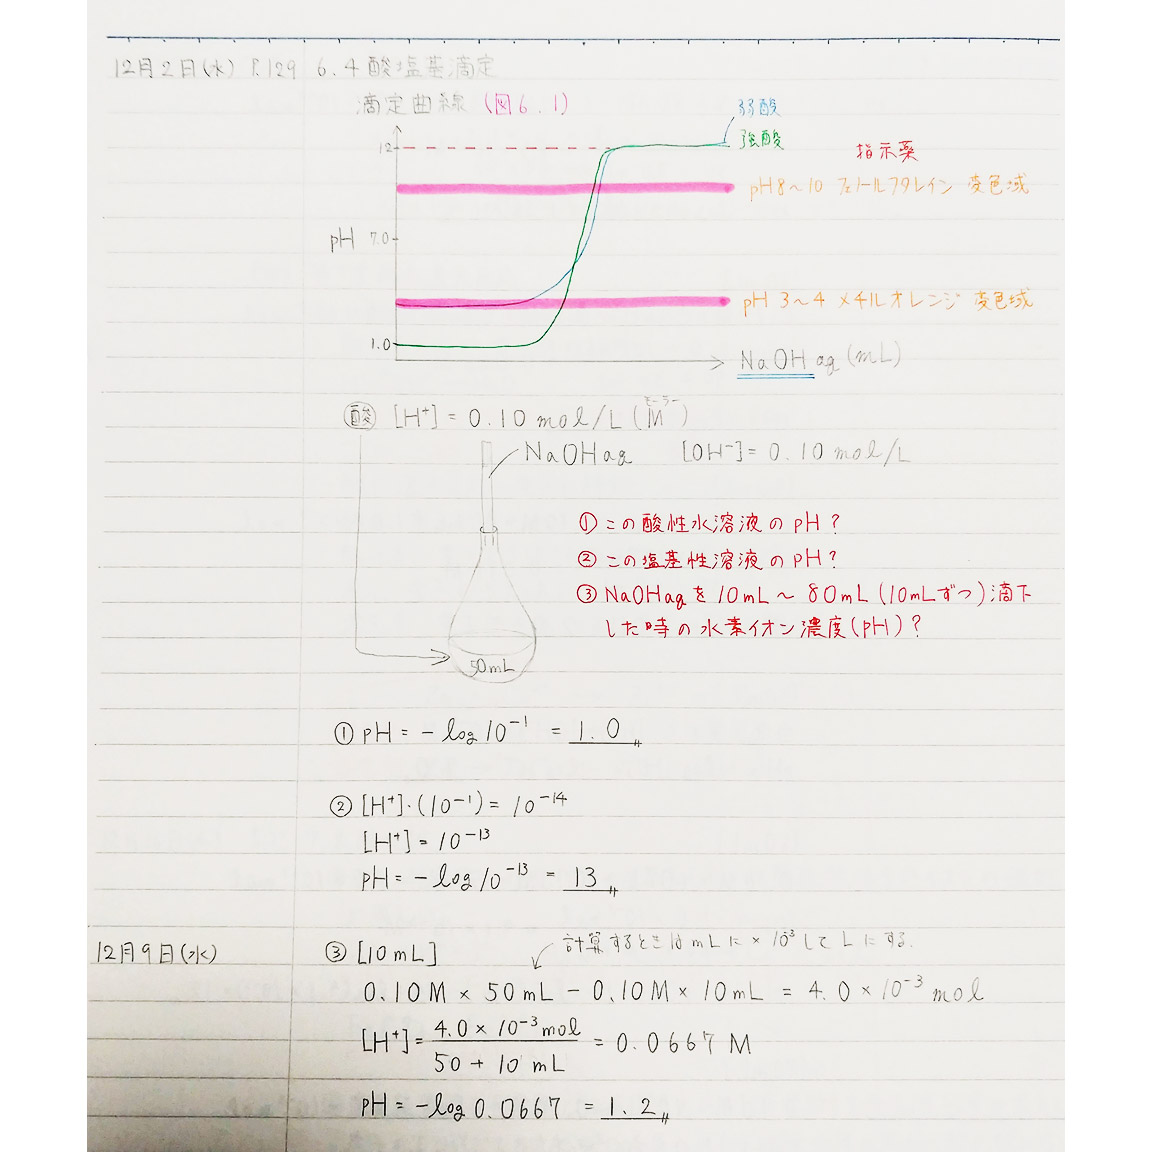 12月2日(水) P.129 6.4 酸塩基滴定
滴定曲線 (図6.1)
弱酸
強酸
12
指示薬
pH8〜10 フェノールフタレイン 変色域
pH 7.0
pH 3〜4 メチルオレンジ 変色域
1.0
NaOH aq (mL)
酸 [H⁺] = 0.10 mol/L (M) モーラー
NaOHaq [OH⁻] = 0.10 mol/L
① この酸性水溶液のpH?
② この塩基性溶液のpH?
③ NaOHaqを10mL〜80mL(10mLずつ)滴下
した時の水素イオン濃度(pH)?
50mL
① pH = -log10⁻¹ = 1.0
② [H⁺]・(10⁻¹) = 10⁻¹⁴
[H⁺] = 10⁻¹³
pH = -log10⁻¹³ = 13
12月9日(水) ③ [10mL] 計算するとき10mLに×10⁻³してLにする.
0.10M × 50mL - 0.10M × 10mL = 4.0 × 10⁻³ mol
[H⁺] = 4.0 × 10⁻³ mol / 50 + 10 mL = 0.0667 M
pH = -log 0.0667 = 1.2